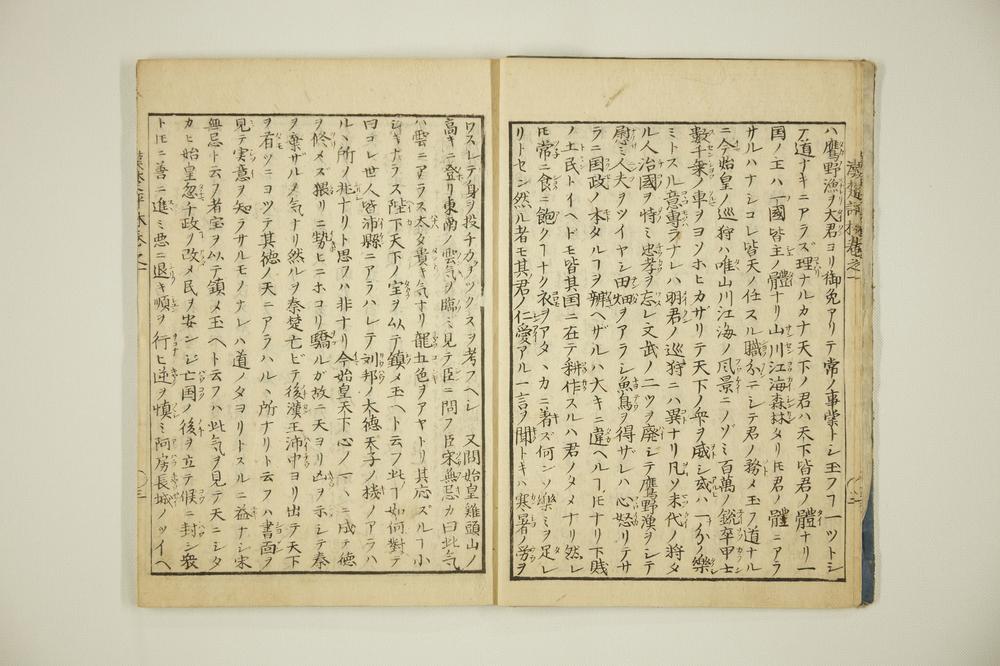 ハ鷹野漁ヲ大君ヨリ御免アリテ常ノ事業トシ玉フヿ一ツトシ
テ道ナキニアラズ理ナルカナ天下ノ君ハ天下皆君ノ體ナリ一
国ノ主ハ一國皆主ノ體ナリ山川江海森林タリ𪜈君ノ體ニアラ
サルハナシコレ皆天ノ任スル職分ニシテ君ノ務メ玉フ道ナル
ニ今始皇ノ巡狩ハ唯山川江海ノ風景ニノゾミ百萬ノ鋭卒甲士
數千乗ノ車ヲヨソホヒカザリテ天下ノ卒ヲ威シ或ハ一分ノ樂
ミトスル意專ラナレハ羽君ノ巡狩ニハ異ナリ凡ソ末代ノ将タ
ル人治國ヲ恃ミ忠孝ヲ忘レ文武ノ二ツヲ廃シテ鷹野漁ヲシテ
慰ミ人夫ヲツイヤシ田畑ヲアラシ魚鳥ヲ得ザレハ心怒リテサ
ラニ国政ノ本タルヿヲ辨ヘザルハ大キニ違ヘルヿ𪜈ナリ下賎
ノ土民トイヘド𪜈皆其国ニ在テ耕作スルハ君ノタメナリ然レ
𪜈常ニ食ニ飽クヿナク衣ヲアタヽカニ著ズ何ンソ樂ミヲ足レ
リトセン然ル者モ其君ノ仁愛アル一言ヲ聞トキハ寒暑ノ労ヲ
ワスレテ身ヲ投チカラヲツクスヲ考フヘシ　又問始皇雞頭山ノ
高キニ登リ東南ノ雲気ヲ臨ミ見テ臣ニ問フ臣宋無忌カ曰此気
ハ雲ニアラス太タ貴キ気ナリ龍五色ヲアヤトリ其応ズルヿ小
シキナラス陛下天下ノ宝ヲ以テ鎮メ玉ヘト云フ此ヿ如何對テ
曰コレ世人皆沛縣ニアラハレテ刘邦ノ大徳天子ノ機ノアラハ
ルヽ所ノ兆ナリト思フハ非ナリ今始皇天下心ノマヽニ成テ徳
ヲ修メズ猥リニ勢ヒニホコリ驕ルガ故ニ天ヨリ凶ヲ示シテ秦
ヲ棄ザルノ気ナリ然ルヲ秦楚亡ビテ後漢王沛中ヨリ出テ天下
ヲ有ツニヨツテ其德ノ天ニアラハルヽ所ナリト云フハ書面ヲ
見テ実意ヲ知ラサルモノナレハ道ノタヨリトスルニ益ナシ宋
無忌ト云フ者宝ヲ以テ鎮メ玉ヘト云フハ此気ヲ見テ天ニシタ
カヒ始皇忽チ政ヲ改メ民ヲ安ンジ亡国ノ後ヲ立テ候ニ封シ衆
ト𪜈ニ善ニ進ミ悪ニ退キ順ヲ行ヒ逆ヲ慎ミ阿房長城ノツイヘ